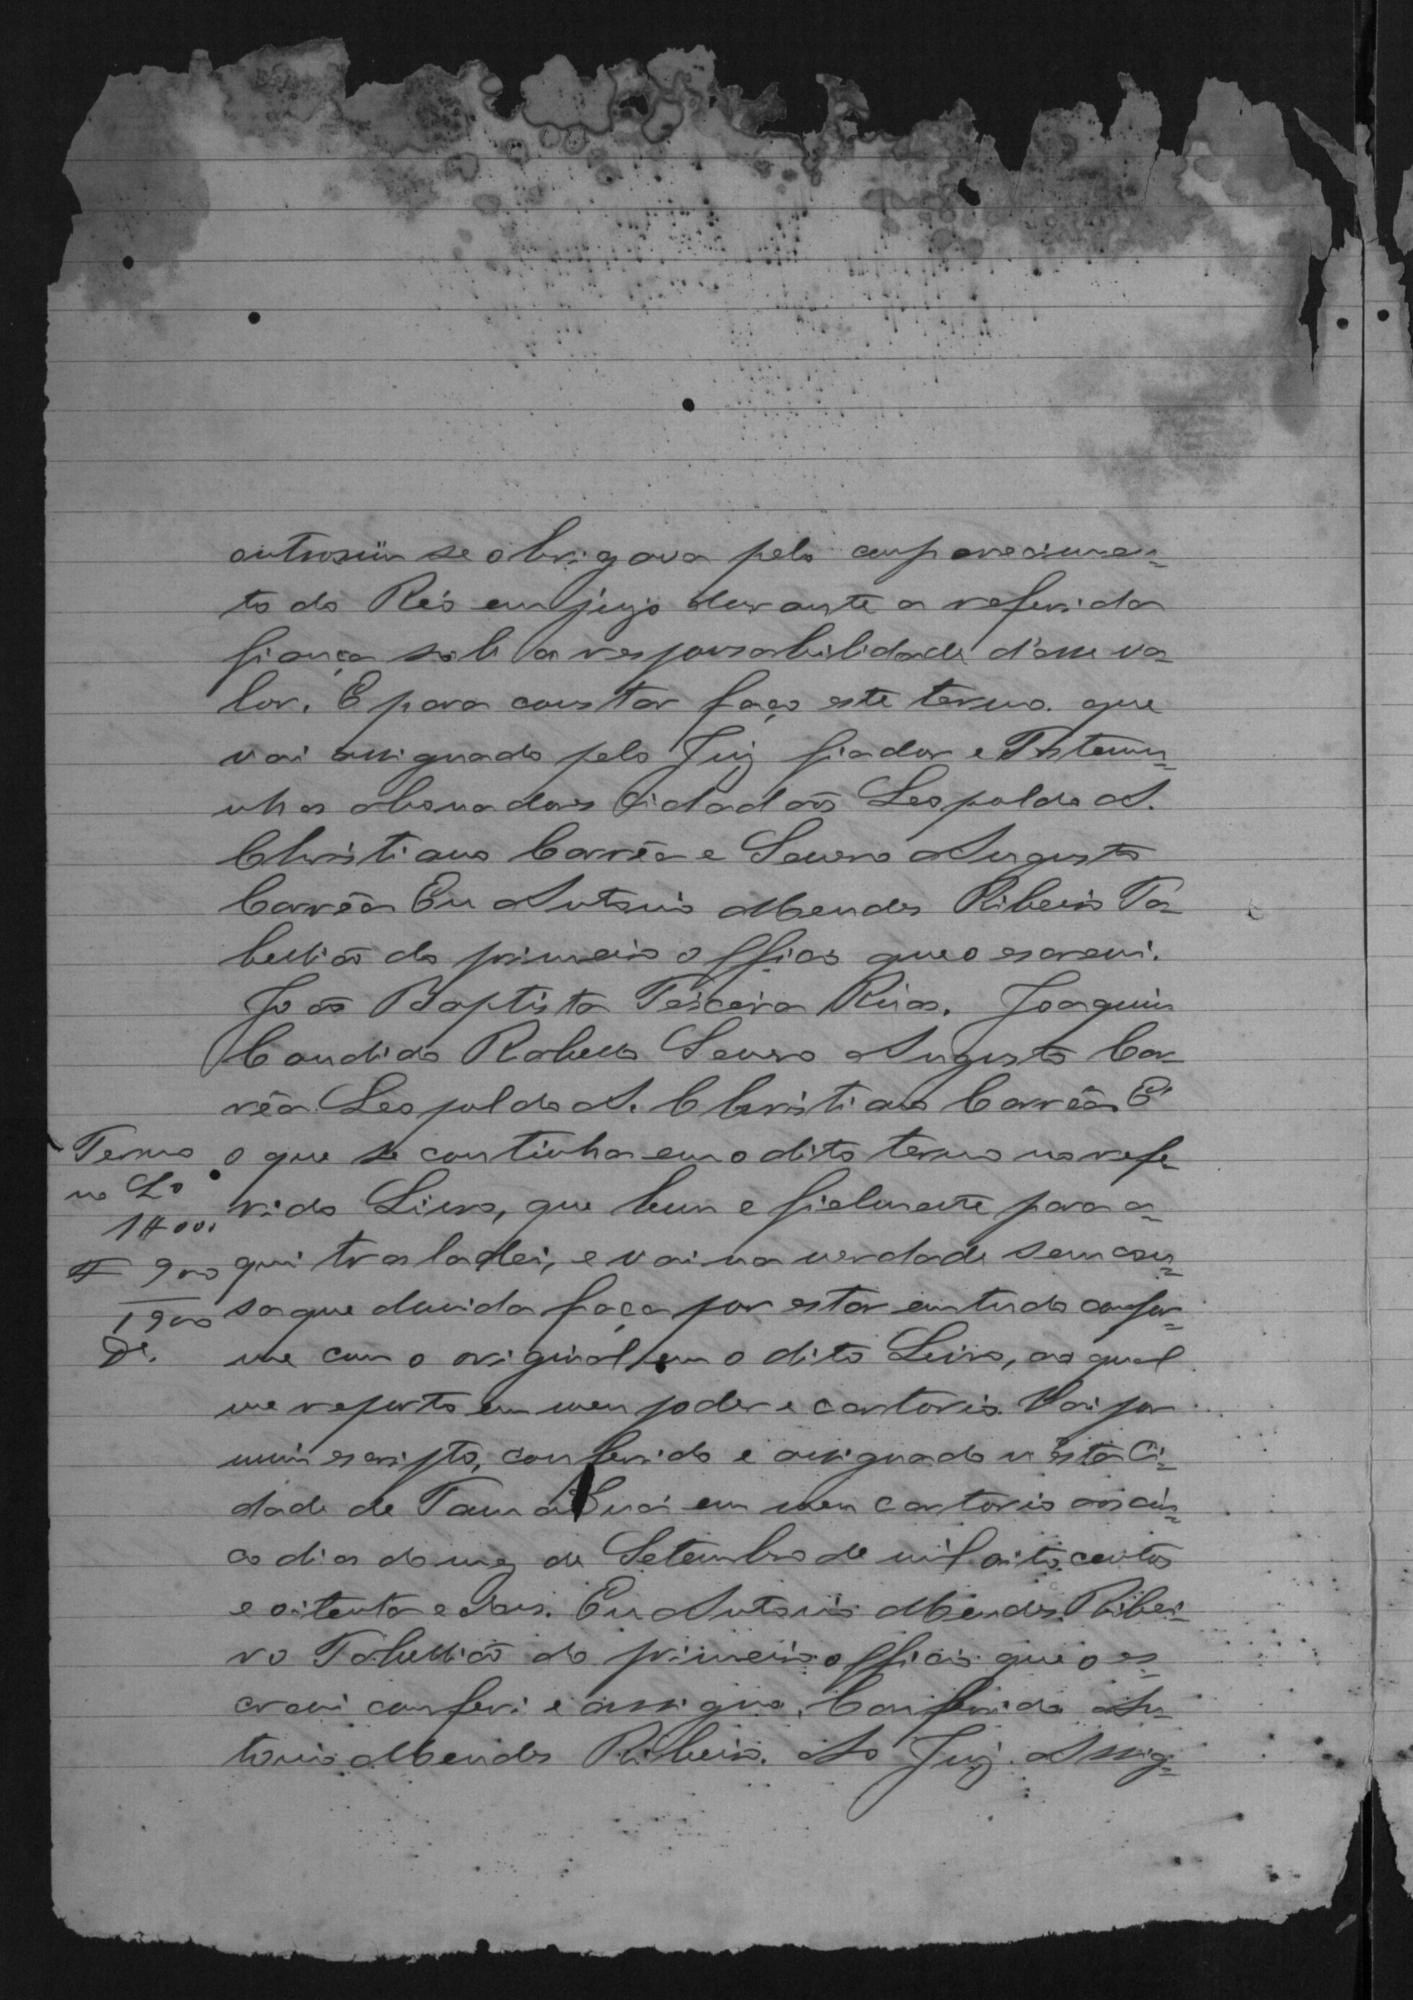 outrosim se obrigava pelo comparecimen=
to do Réo em juizo durante a referida
fiança sob a responsabilidade d'esse va=
lor. E para constar faço este termo que
vai assignado pelo Juiz fiador e Testemu=
nhas abonadores Cidadãos Leopoldo A.
Christiano Corrêa e Severo Augusto
Corrêa Eu Antonio Mendes Ribeiro Ta=
bellião do primeiro officio que o escrevi.
João Baptista Teixeira Ruas. Joaquim
Candido Rabello Severo Augusto Cor=
rêa Leopoldo A. Christiano Corrêa E'
o que se continha em o dito termo no refe=
rido Livro, que bem e fielmente para a=
qui trasladei, e vai na verdade sem cou=
sa que duvida faça por estar em tudo confor=
me com o original em o dito Livro, ao qual
me reporto em meu poder e cartorio. Vai por
mim escripto, conferido e assignado n'esta Ci=
dade de Tamanduá em meu cartorio aos cin=
co dias do mez de Setembro de mil oito centos
e oitenta e dous. Eu Antonio Mendes Ribei=
ro Tabellião do primeiro officio que o es=
crevi conferi e assigno. Conferido An=
tonio Mendes Ribeiro. Ao Juiz. Assig=
Termo
no Lº
1#000
F 900
1900